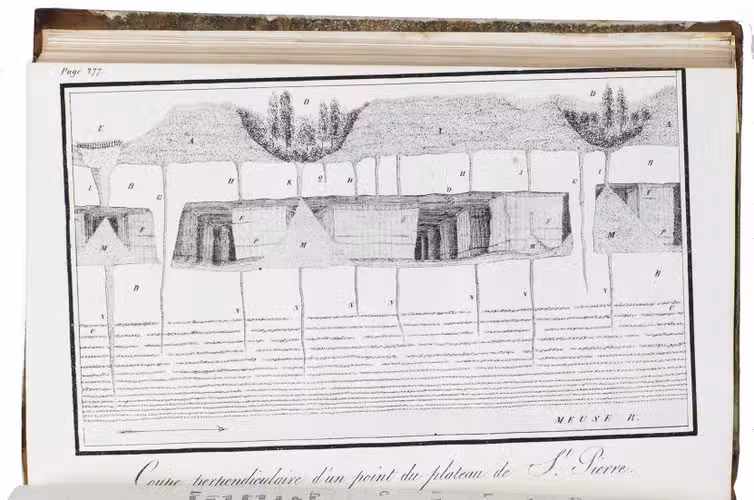 Page 277.
D
D
E
A
I
A
I
B
G
H
K
Q
H
H
I
G
I
B
O
F
F
P
F
F
P
M
M
M
B
B
N
N
N
N
N
N
N
N
C
C
MEUSE R.
Coupe perpendiculaire d'un point du plateau de St. Pierre.